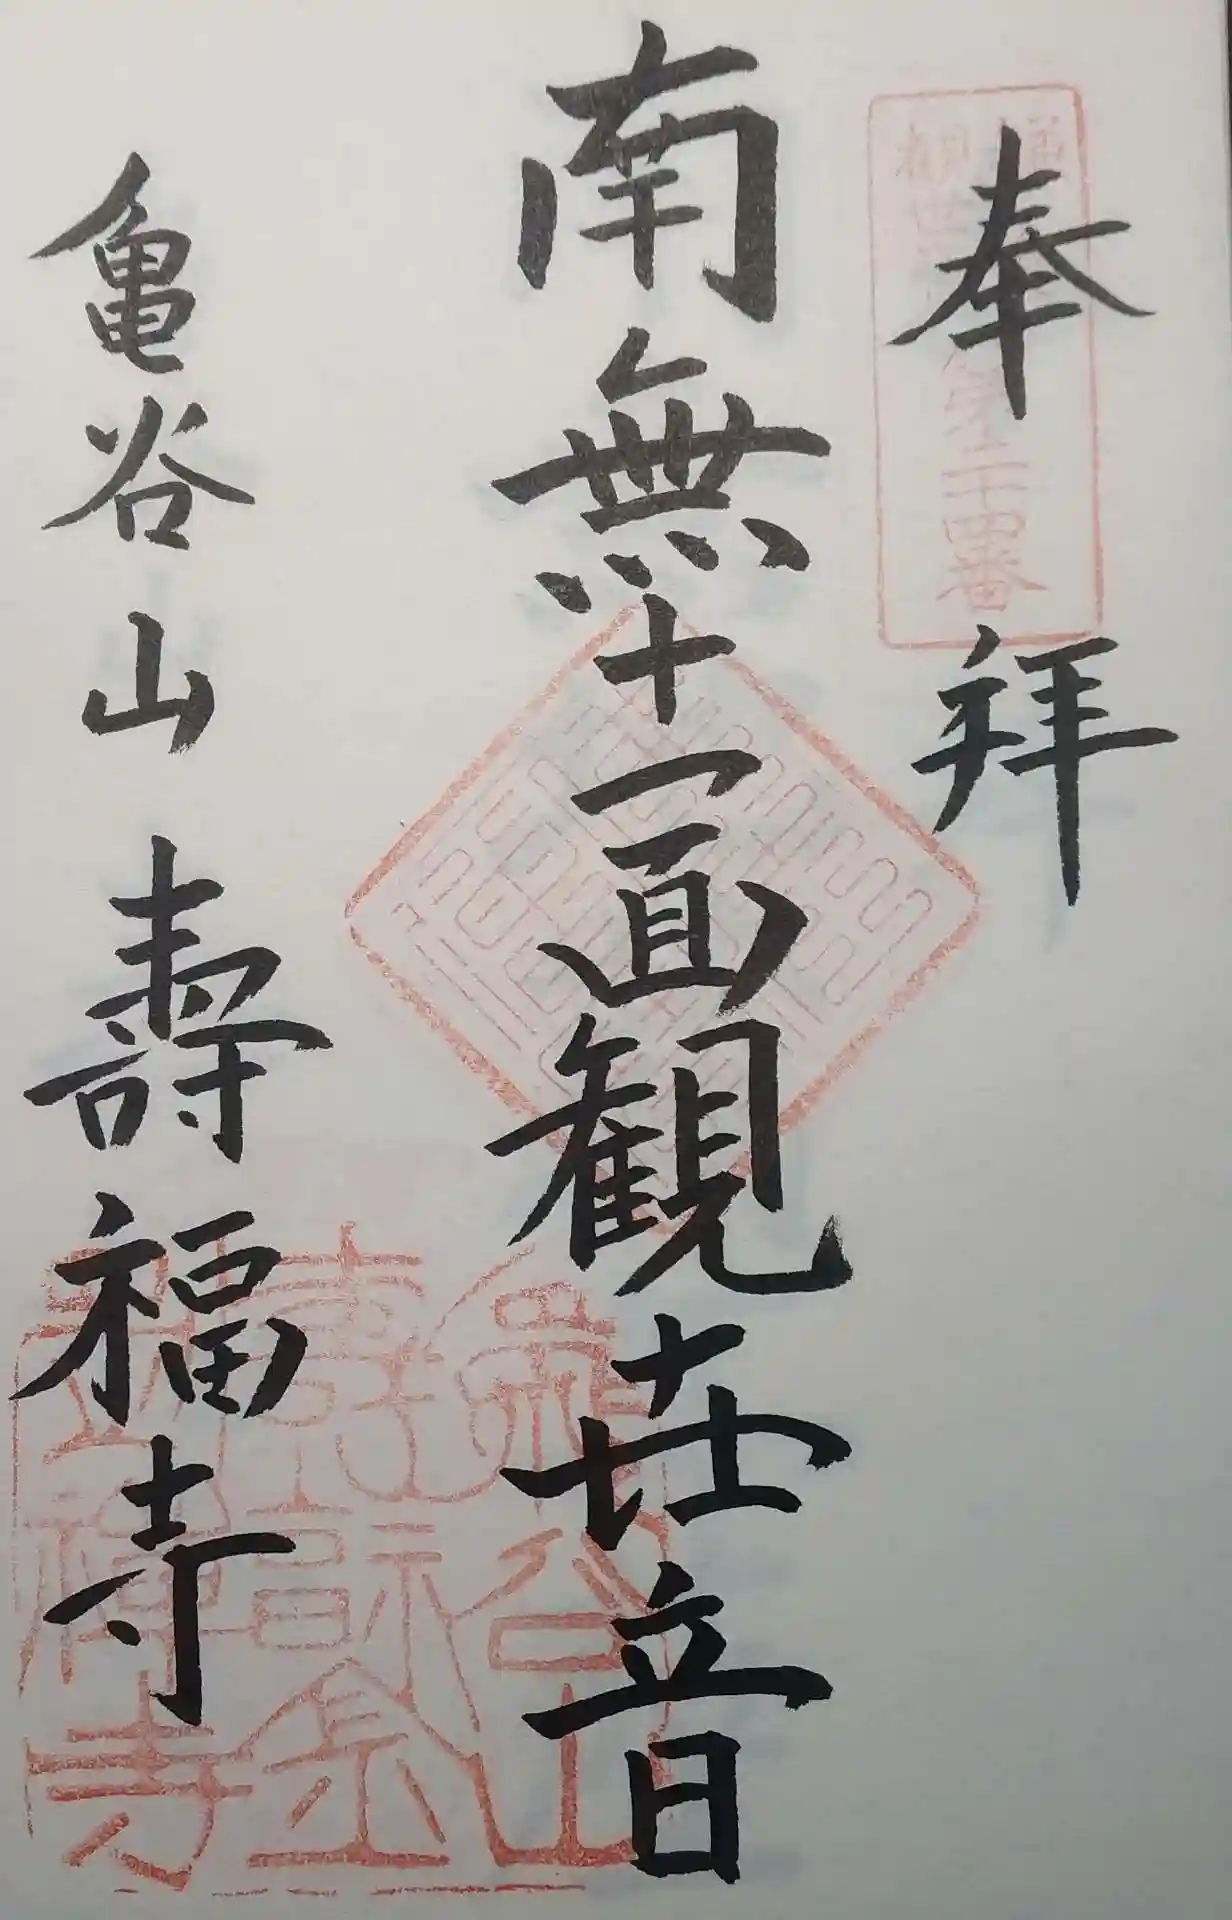 奉拝
第二十四番
南無十一面観世音
亀谷山壽福寺
亀谷山
壽福金
剛禅寺